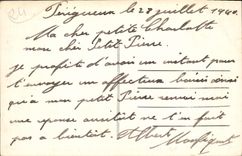 Périgueux le 28 juillet 1940.
Ma cher petite Charlotte
mon cher Petit Pierre.
Je profite d'avoir un instant pour
t'envoyer un affectueux baiser ainsi
qu'a mon petit Pierre
une réponse ne l'en fait
pas a bientôt. Albert